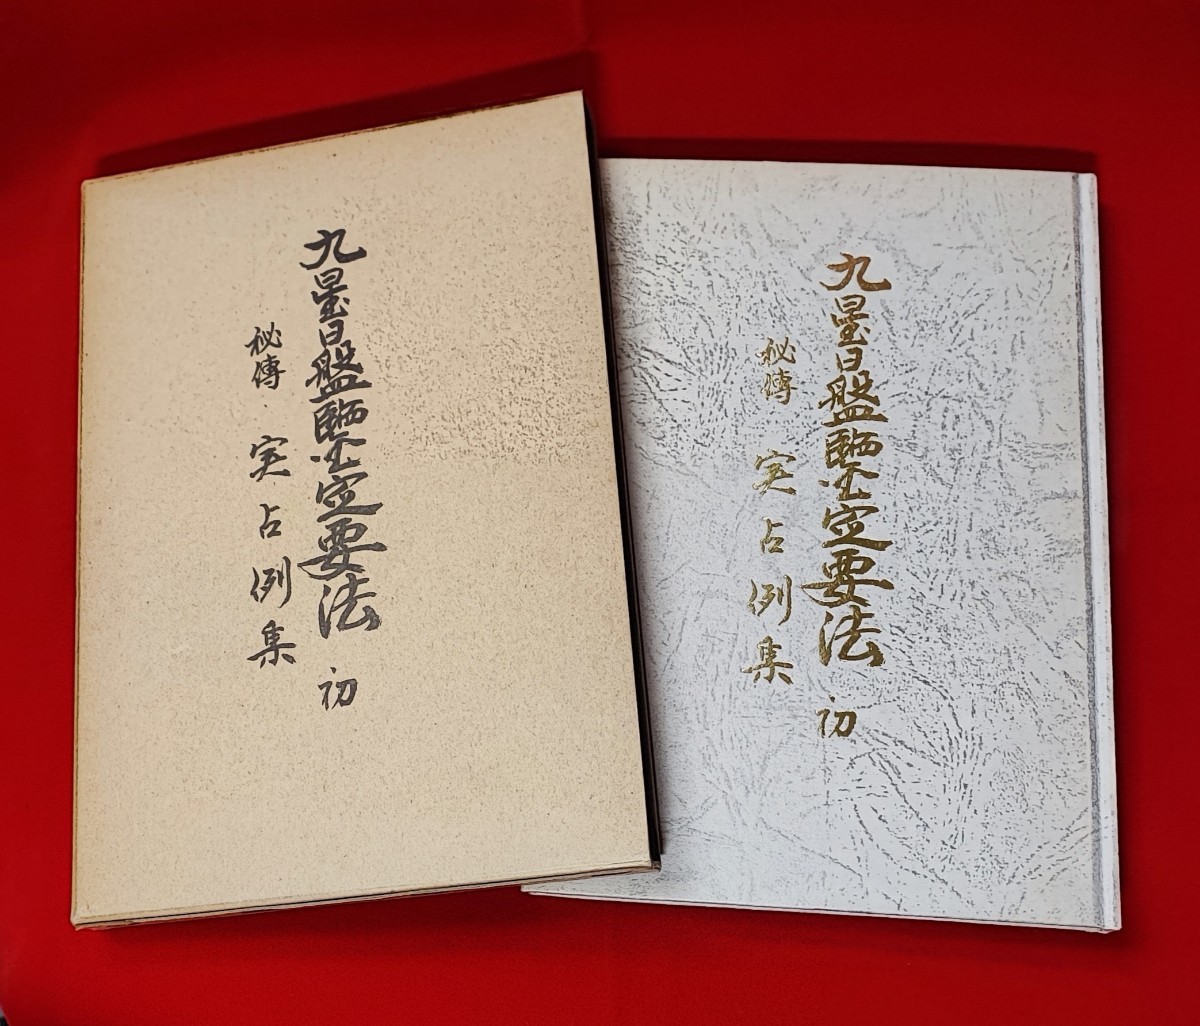 九星日盤鑒定要法 初
秘傳 実占例集
九星日盤鑒定要法 初
秘傳 実占例集